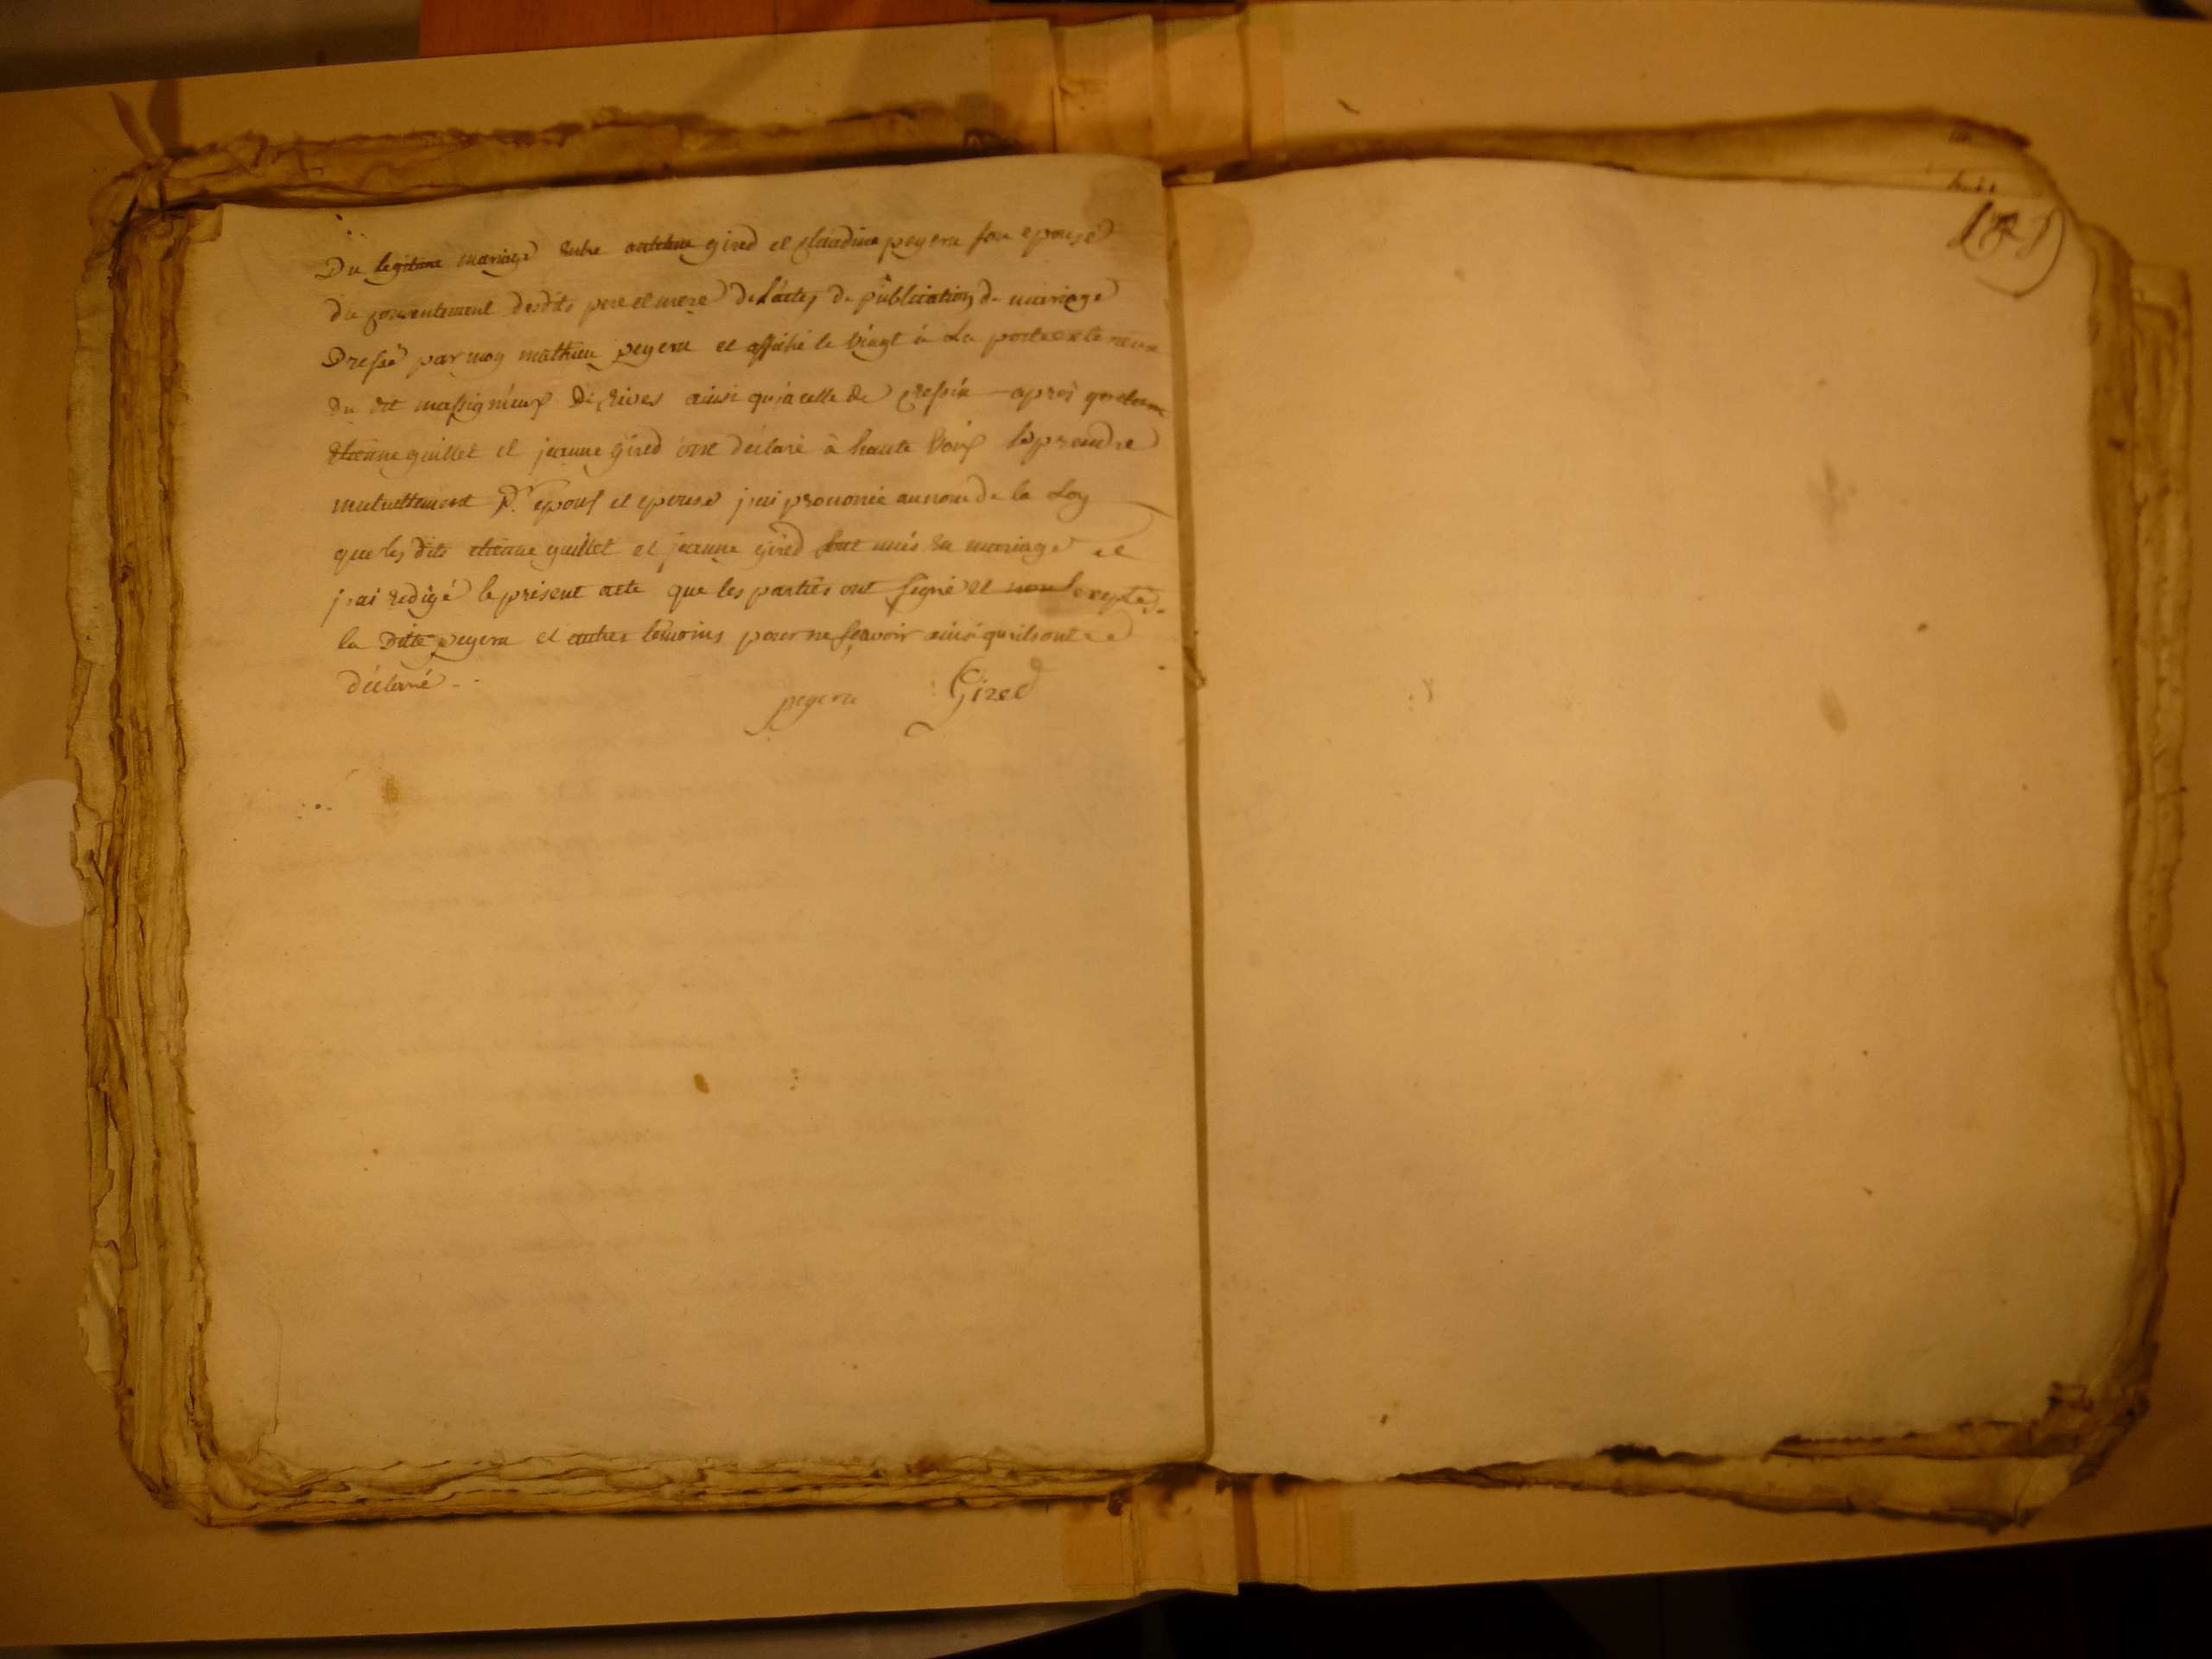 Du legitime mariage entre anthême gired et claudine peyeru son epouse
du consentement desdits pere et mere de l'actes de publication de mariage
Dressé par moy mathieu peyeru et affiché le vingt à La porte exterieure
du dit massignieux De rives ainsi qu'a celle de cressin — après que
etienne guillet et jeanne gired ont déclaré à haute voix se prendre
mutuellement pr. epoux et epouse j'ai prononcé au nom de la Loy
que les dits etienne guillet et jeanne gired sont unis en mariage et
j'ai redigé le présent acte que les parties ont signé et non excepté
la Ditte peyeru et autres témoins pour ne sçavoir ainsi qu'ils ont
déclaré - .
peyeru Gired